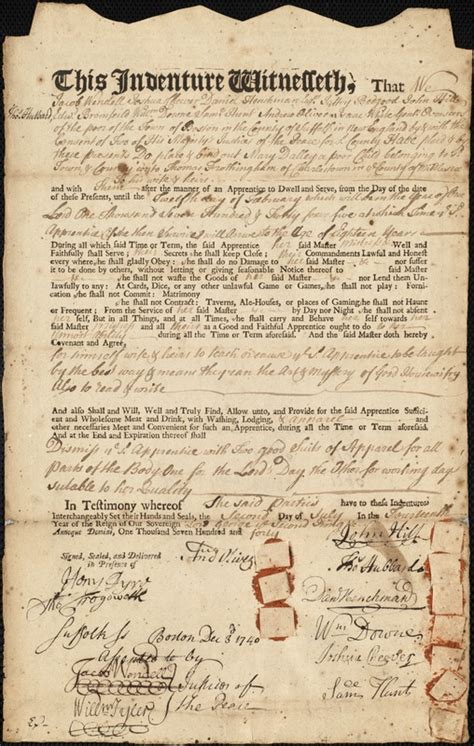 This Indenture Witnesseth, That We
Jacob Wendell Joshua Cheever Daniel Henchman John Hill
Tho: Hubbard William Downe Saml Hunt Andrew Oliver Isaac
of the poor of the Town of Boston in the County of Suffolk in New England by & with the
Consent of Two of His Majestys Justices of the Peace for County Have placed & by
these presents Do place & bind out Mary Dalley a poor Child belonging to
Town & County with Thomas Frothingham of Charlestown in County of Middlesex
wife & heirs
and with them after the manner of an Apprentice to Dwell and Serve, from the Day of the date
of these Presents, until the Twelfth day of February which will be in the Year of Our
Lord One Thousand Seven Hundred & Fifty
Apprentice if then living will arrive to the Age of Eighteen Years
During all which said Time or Term, the said Apprentice her said Master Well and
Faithfully shall Serve; their Secrets she shall keep Close; their Commandments Lawful and Honest
every where she shall gladly Obey; she shall do no Damage to her said Master nor suffer
it to be done by others, without letting or giving seasonable Notice thereof to said
she shall not waste the Goods of her said Master nor Lend them Un-
lawfully to any: At Cards, Dice, or any other unlawful Game or Games, she shall not play; Forni-
cation she shall not Commit: Matrimony
she shall not Contract: Taverns, Ale-Houses, or places of Gaming, she shall not Haunt
or Frequent; From the Service of her said Master by Day nor Night she shall not absent
her self, But in all Things, and at all Times, she shall carry and Behave her self towards her
said Master and all theirs as a Good and Faithful Apprentice ought to do to her
utmost ability during all the Time or Term aforesaid. And the said Master doth hereby
Covenant and Agree,
for himself wife & heirs to teach or cause Apprentice to be taught
by the best way & means they can the Art & Mystery of Good Housewifery
Also to read & write
And also Shall and Will, Well and Truly Find, Allow unto, and Provide for the said Apprentice Suffici-
ent and Wholesome Meat and Drink, with Washing, Lodging, & apparel and
other necessaries Meet and Convenient for such an Apprentice, during all the Time or Term aforesaid.
And at the End and Expiration thereof shall
Dismiss Apprentice with Two good Suits of Apparel for all
parts of the Body One for the Lords Day the Other for working days
sutable to her Quality
In Testimony whereof The said Parties have to these Indentures
Interchangeably Set their Hands and Seals, the Second Day of July In the Fourteenth
Year of the Reign of Our Sovereign Lord George the Second
Annoque Domini, One Thousand Seven Hundred and forty
Signed, Sealed, and Delivered
in Presence of
And Oliver
John Hill
Tho: Hubbard
Danl Henchman
Wm Downe
Joshua Cheever
Saml Hunt
Suffolk Ss Boston Dec 8 1740
Assented to by
Jacob Wendell
Justices of
the Peace
Willm Tyler